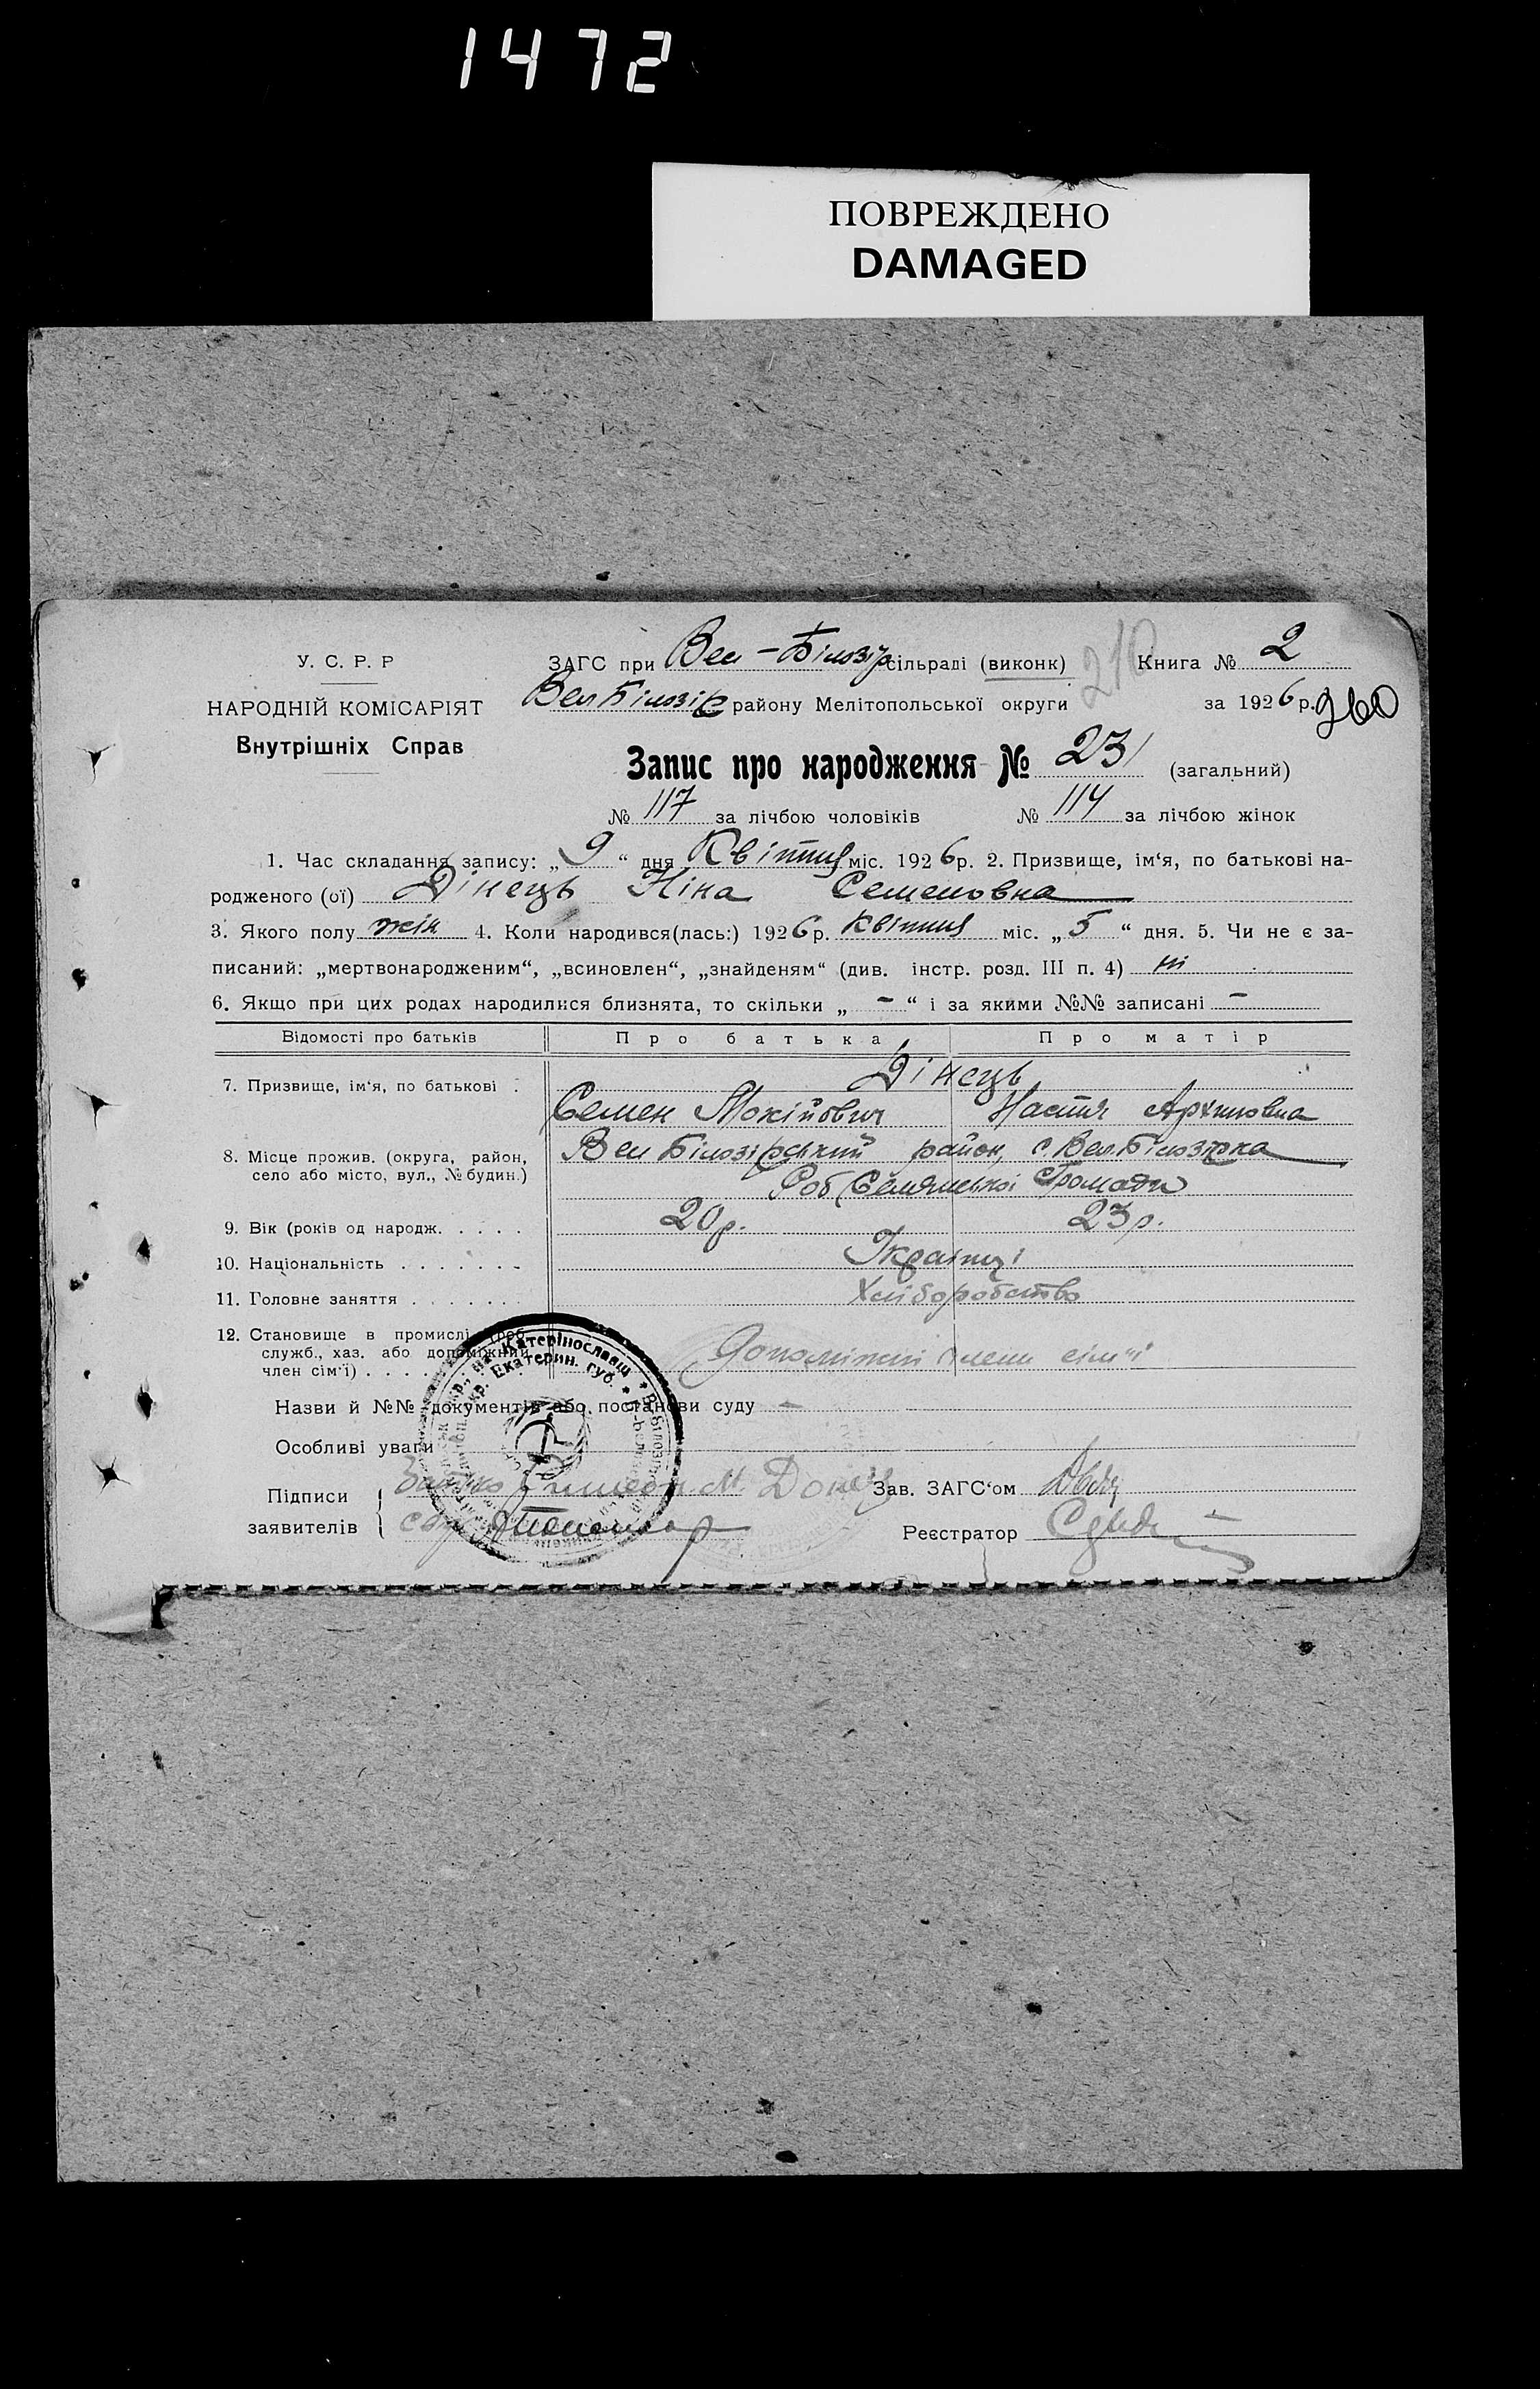 1472
ПОВРЕЖДЕНО
DAMAGED
У. С. Р. Р
НАРОДНІЙ КОМІСАРІЯТ
Внутрішніх Справ
ЗАГС при Вел-Білозір сільраді (виконк) 210 Книга № 2
Вел Білозір району Мелітопольської округи за 1926 р. 260
Запис про народження № 231 (загальний)
№ 117 за лічбою чоловіків № 114 за лічбою жінок
1. Час складання запису: „9“ дня Квітня міс. 1926 р. 2. Призвище, ім‘я, по батькові на-
родженого (ої) Дінець Ніна Семеновна
3. Якого полу жін 4. Коли народився(лась:) 1926 р. Квітня міс. „5“ дня. 5. Чи не є за-
писаний: „мертвонародженим“, „всиновлен“, „знайденям“ (див. інстр. розд. III п. 4) ні
6. Якщо при цих родах народилися близнята, то скільки „-“ і за якими №№ записані -
Відомості про батьків Про батька Про матір
7. Призвище, ім‘я, по батькові . Дінець
Семен Мокійович Настя Архиповна
8. Місце прожив. (округа, район, село або місто, вул., № будин.) Вел Білозірський район, с. Вел. Білозірка
Роб Селянської Громади
9. Вік (років од народж. . . . . 20 р. 23 р.
10. Національність . . . . . . . Українці
11. Головне заняття . . . . . . . Хліборобство
12. Становище в промислі (роб.
служб., хаз. або допоміжний
член сім‘ї) . . . . Допоміжні члени сім'ї
Назви й №№ документів або постанови суду -
Особливі уваги
Підписи заявителів М. Донец Зав. ЗАГС‘ом
Реєстратор
на Катерінославщ
окр. Екатерин. губ.